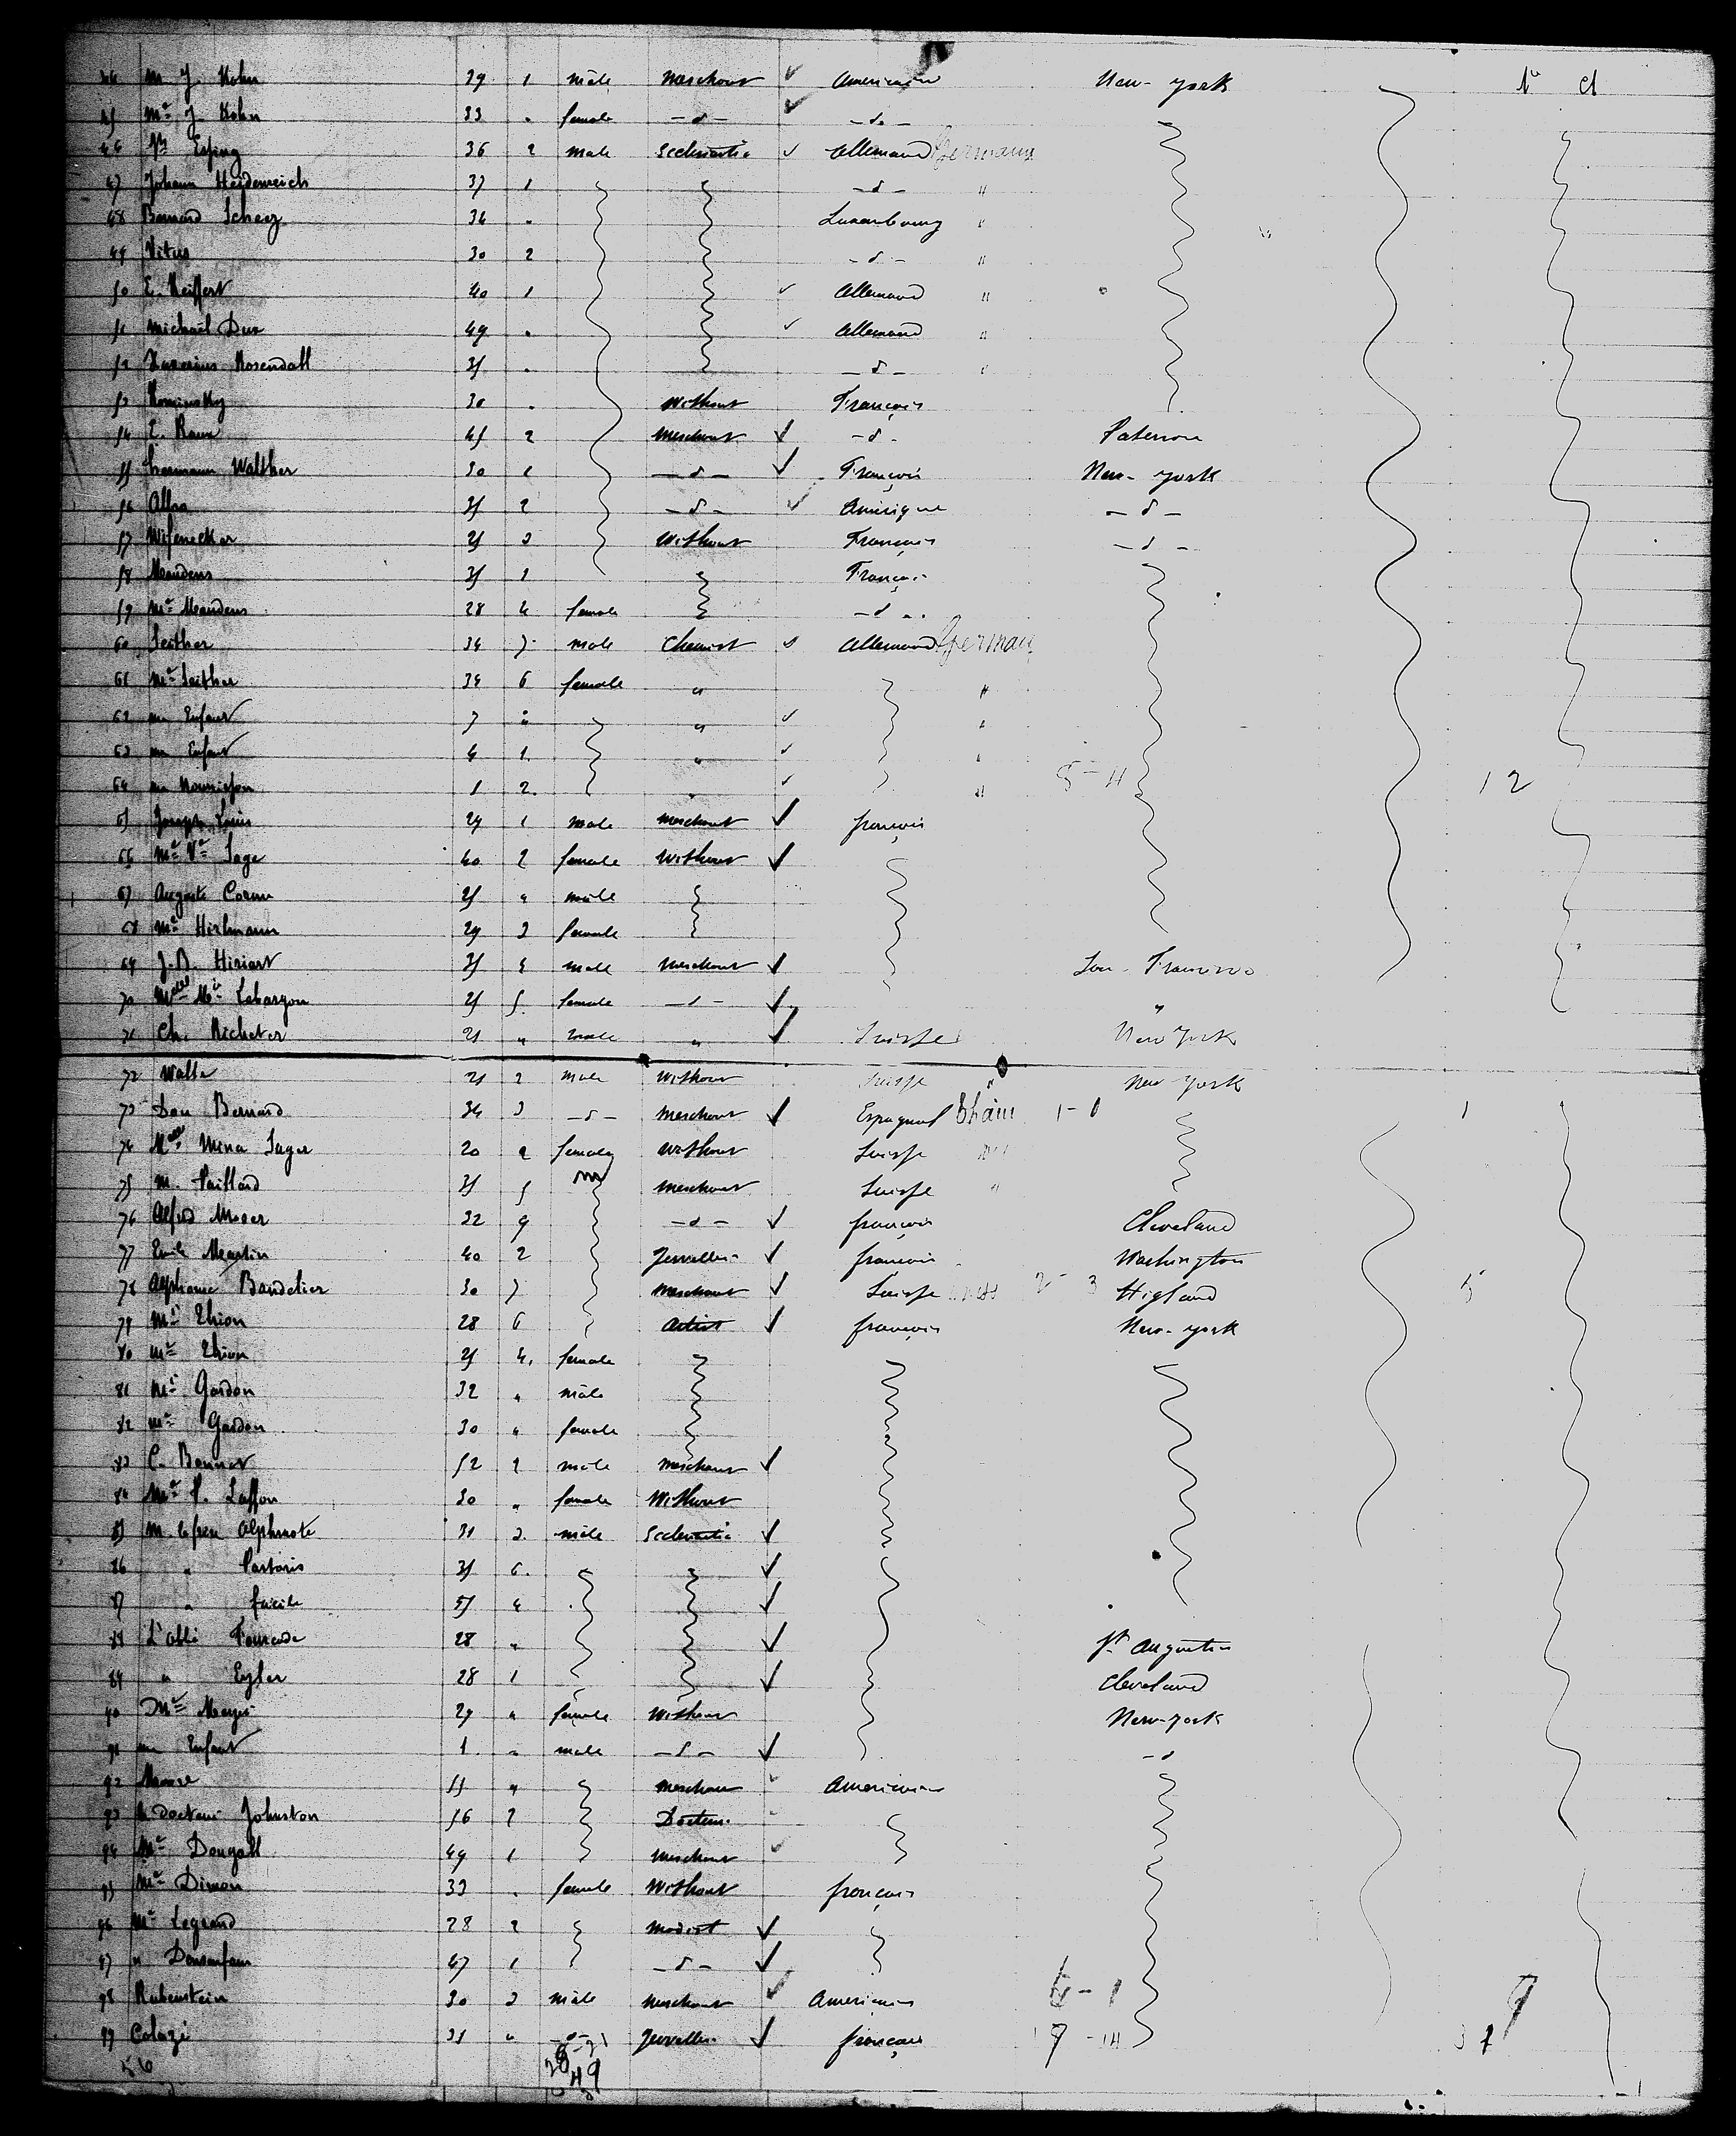 M. J. Kohn 39 1 mâle Merchant ✓ Américain New-York 1e cl
45 Me J. Kohn 33 " female -d- ✓ -do-
46 Esping 36 2 male Ecclesiastic ✓ Allemand German
47 Johann Heidenreich 37 1 -d- "
48 Bernard Scherz 34 " Luxembourg "
49 Vitus 30 2 -d- "
50 E. Keiffert 40 1 ✓ Allemand "
51 Michaël Dux 49 " ✓ Allemand "
52 Rosendall 35 " -d- "
53 30 " Without Français
54 E. Raux 45 2 Merchant ✓ -d- Paterson
55 Hermann Walther 30 1 -d- ✓ Français New-York
56 35 2 -d- ✓ Amérique -d-
57 Wifenecker 25 3 Without Français -d-
58 Meandens 35 1 Français
59 Me Meandens 28 4 female -d-
60 Leither 34 7 male Chemist ✓ Allemand German
61 Me Leither 34 6 female "
62 un Enfant 7 " " ✓ "
63 un Enfant 4 1 " ✓ "
64 un Nourrisson 1 2 " ✓ " 5-4 12
65 Joseph Louis 29 1 male Merchant ✓ français
66 Me Ve Sage 40 2 female Without ✓
67 Auguste Cornu 25 " mâle
68 Me Hirlmann 29 3 female
69 J.B. Hiriart 35 4 male Merchant ✓ San-Francisco
70 Melle Mie Labargou 25 5 female -d- ✓ "
71 Ch. Richeter 21 " male " ✓ Suisse New York
72 Walla 25 2 male Without Suisse " New-York
73 Dou Bernard 34 3 -d- Merchant ✓ Espagnol Spain 1-0 1
74 Melle Mina Sager 20 2 female Without Suisse
75 M. Paillard 35 5 m Merchant Suisse "
76 Alfred Moser 32 9 -d- ✓ français Cleveland
77 Emile Meartin 40 2 Jeweller ✓ français Washington
78 Alphonse Bandelier 30 7 Merchant ✓ Suisse 2-3 Higland 5
79 Mr Thion 28 6 Artist ✓ français New-York
80 Me Thion 25 4 female
81 Mr Gardon 32 " mâle
82 Me Gardon 30 " female
83 C. Bonnet 52 2 mâle Merchant ✓
84 Me P. Laffon 30 " female Without
85 M. le frère Alphinote 31 3 mâle Ecclesiastic ✓
86 " Pastoris 35 6 ✓
87 " facile 55 4 ✓
88 L'abbé Fourcade 28 " ✓ St Augustin
89 " Eyler 28 1 ✓ Cleveland
90 Me Meyer 29 " female Without New-York
91 un Enfant 1 " male -d- ✓ -d
92 Moore 55 " Merchant ✓ Américain
93 le Docteur Johnston 56 2 Docteur
94 Mr Dougall 49 1 Merchant ✓
95 Me Dimon 33 " female Without français
96 Me Legrand 28 2 Modist ✓
97 " 47 1 -d- ✓
98 Rubenstein 30 3 mâle Merchant ✓ Américain 6-1 9
99 Colazi 35 " -d- Jeweller ✓ français 9-14 37
56 49